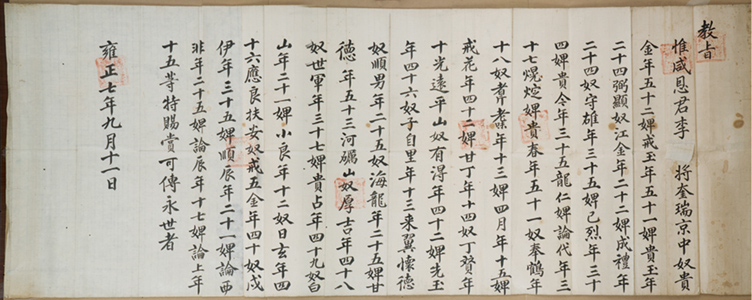 教旨
惟咸恩君李 將奎瑞京中奴貴
金年五十二婢戒玉年五十一婢貴玉年
二十四弼顯奴江金年二十二婢成禮年
二十四奴守雄年三十五婢己烈年三十
四婢貴令年三十五龍仁婢論代年三
十七焜煌婢貴春年五十一奴奉鶴年
十八奴 年十三婢四月年十五婢
戒花年四十二婢甘丁年十四奴丁贇年
十光遠平山奴有淂年四十二婢先玉
年四十六奴子自里年十三來翼懷德
奴順男年二十五奴海龍年二十五婢甘
德年五十三河礪山奴厚吉年四十八
奴世軍年三十七婢貴占年四十九奴白
山年二十一婢小良年十二奴日玄年四
十六應良扶安奴戒五金年四十奴戍
伊年三十五婢順辰年二十一婢論西
非年二十五婢論辰年十七婢論上年
十五等特賜賞可傳永世者
雍正七年九月十一日